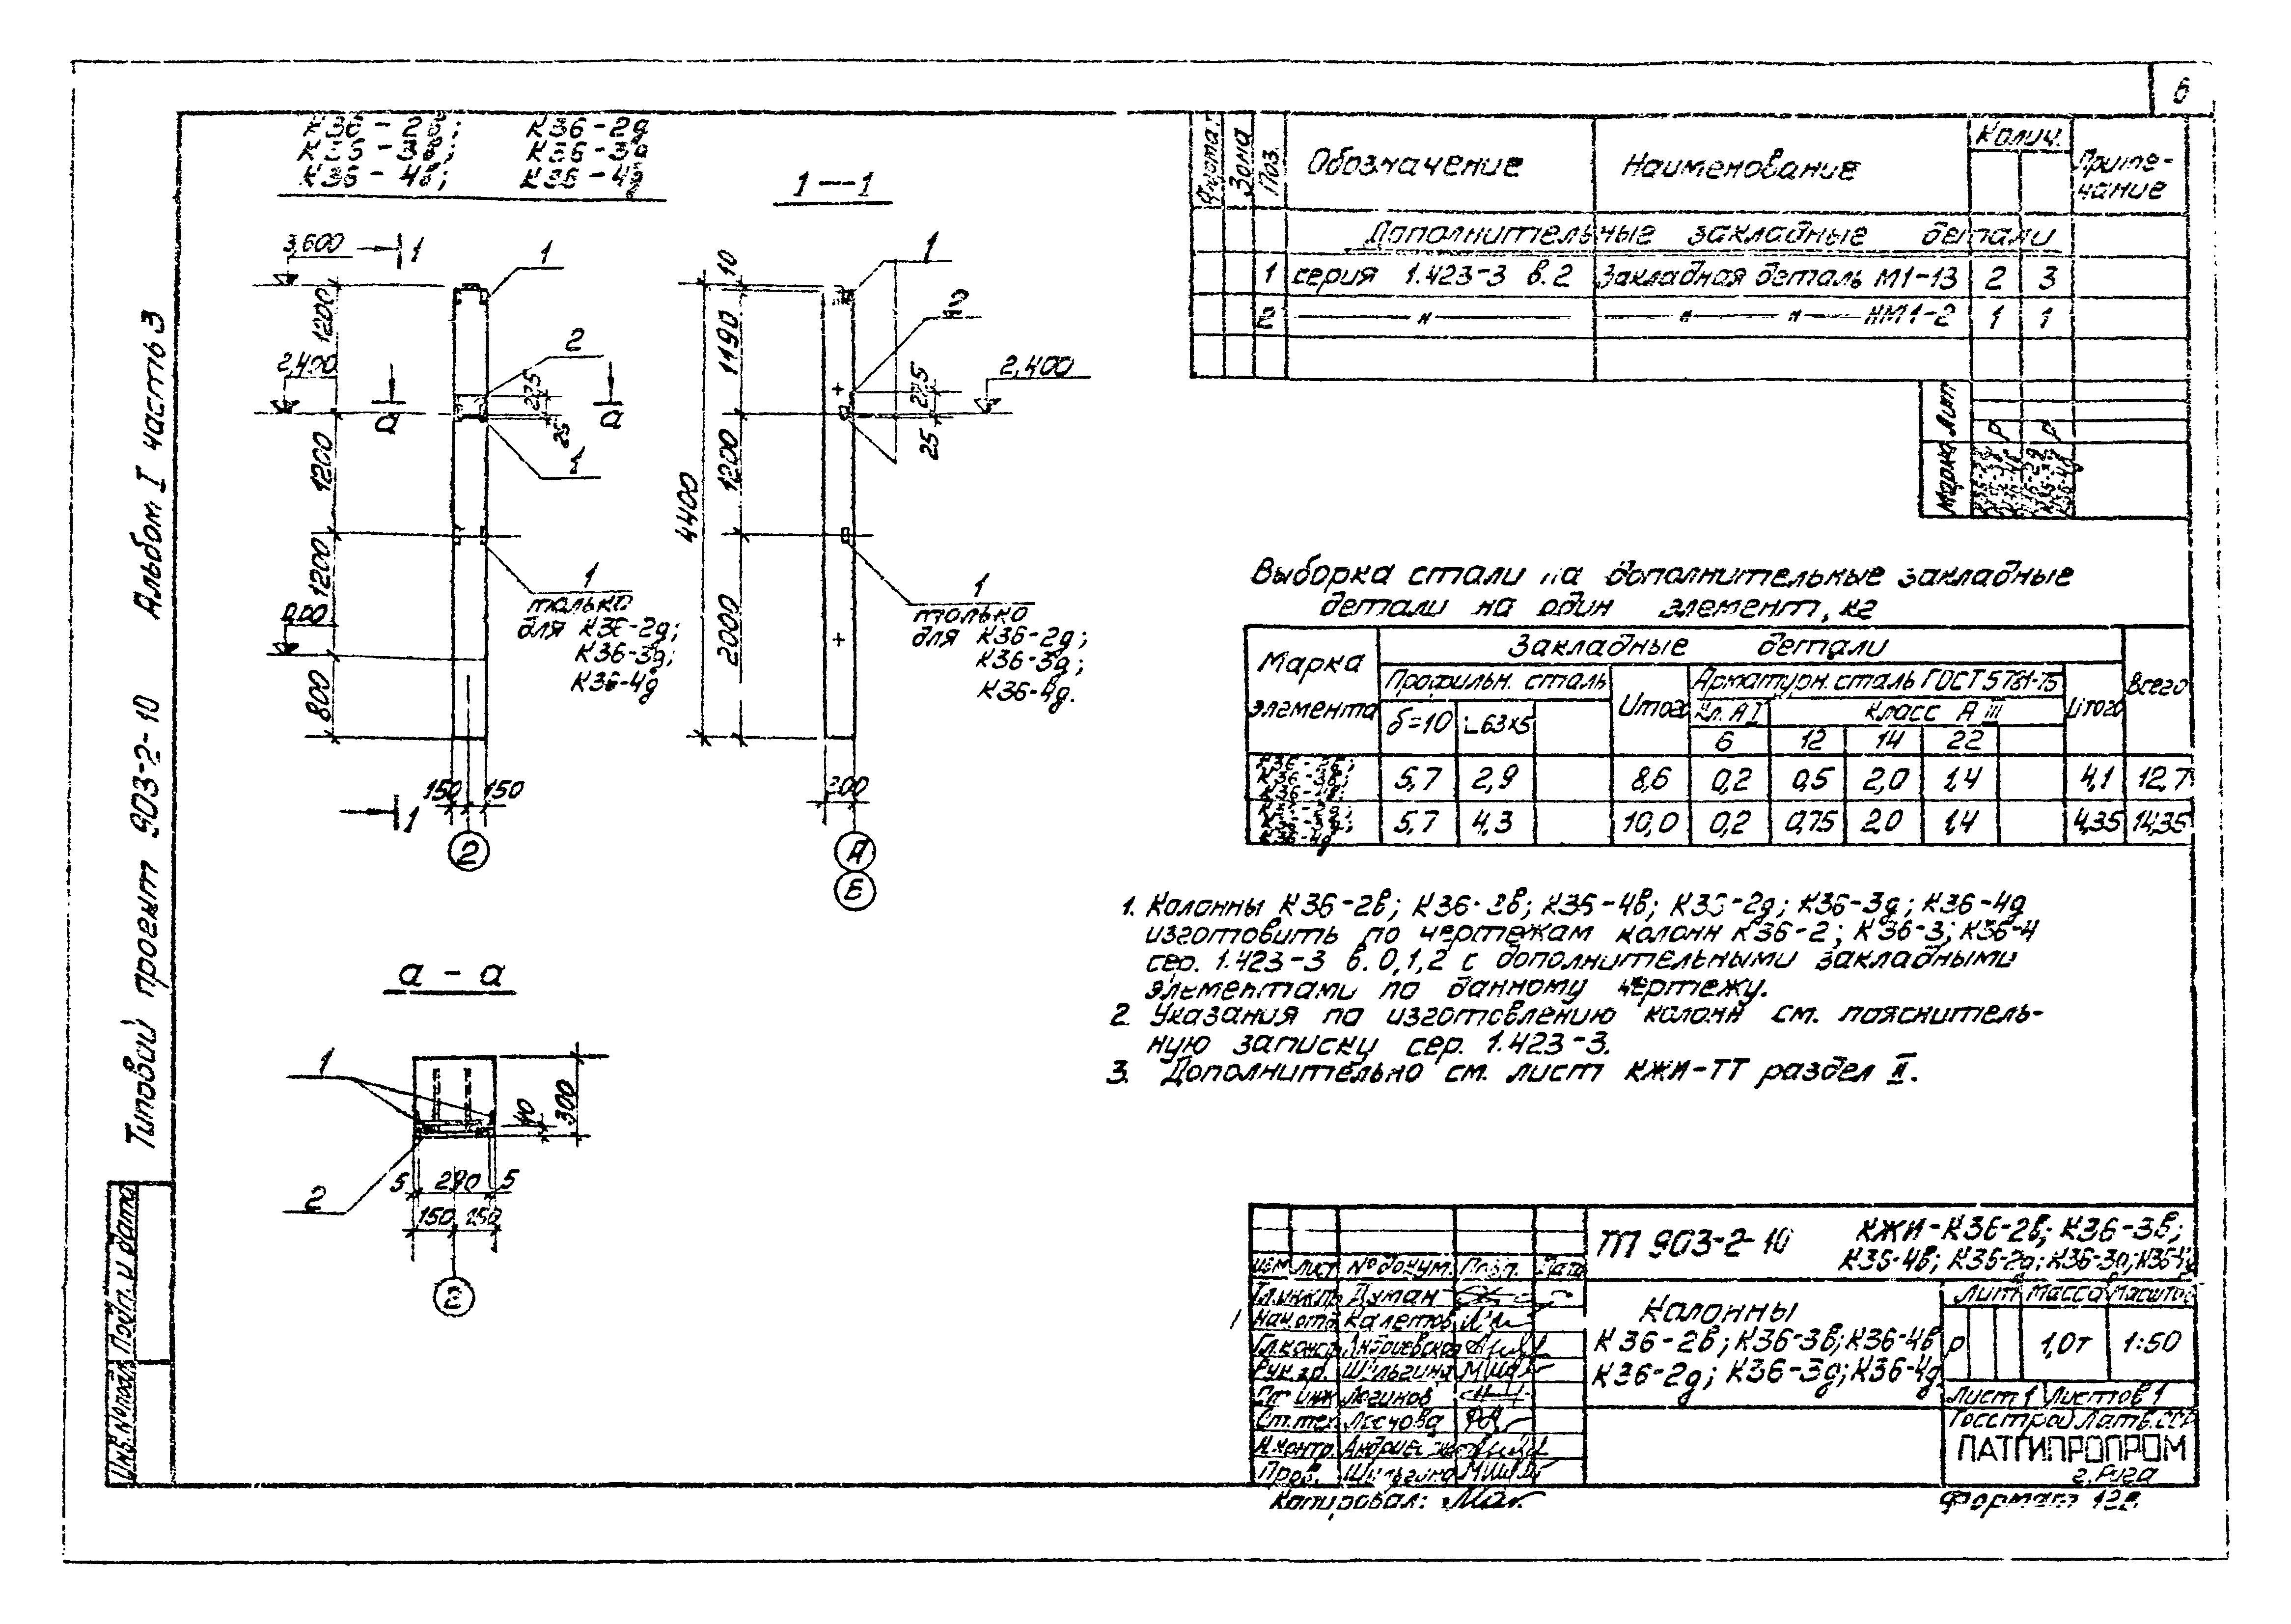 6
К36-2в; К36-2д
К36-3в; К36-3д
К36-4в; К36-4д
1—1
3,600
1
1
1200
2,400
2
а
а
27,5
25
1
1200
1200
1
только
для К36-2д;
К36-3д;
К36-4д
0,00
800
150 150
1
2
10
1
2
1190
2,400
27,5
25
1200
4400
2000
1
только
для К36-2д;
К36-3д;
К36-4д.
300
А
Б
а - а
1
2
40
300
5 290 5
150 150
2
Типовой проект 903-2-10 Альбом I часть 3
Инв.№подл. Подп. и дата
Формат Зона Поз. Обозначение Наименование Колич. Примечание
Дополнительные закладные детали
1 серия 1.423-3 в.2 Закладная деталь М1-13 2 3
2 — " — — " — " — НМ1-2 1 1
Лит Р Р
Марка
Выборка стали на дополнительные закладные
детали на один элемент, кг
Марка элемента Закладные детали Всего
Профильн. сталь Итого Арматурн. сталь ГОСТ 5781-75 Итого
δ=10 ∟63х5 Кл. АI Класс АIII
6 12 14 22
К36-2в; К36-3в; К36-4в; 5,7 2,9 8,6 0,2 0,5 2,0 1,4 4,1 12,7
К36-2д; К36-3д; К36-4д 5,7 4,3 10,0 0,2 0,75 2,0 1,4 4,35 14,35
1. Колонны К36-2в; К36-3в; К36-4в; К36-2д; К36-3д; К36-4д
изготовить по чертежам колонн К36-2; К36-3; К36-4
сер. 1.423-3 в.0,1,2 с дополнительными закладными
элементами по данному чертежу.
2. Указания по изготовлению колонн см. пояснитель-
ную записку сер. 1.423-3.
3. Дополнительно см. лист КЖИ-ТТ раздел II.
Т 903-2-10 КЖИ-К36-2в; К36-3в;
К36-4в; К36-2д; К36-3д; К36-4д
Изм Лист №докум. Подп. Дата
Гл.инж.пр Думан
Нач.отд. Калетов
Гл.констр
Рук.гр. Шульгина
Ст. инж Логинов
Ст.тех.
Н.контр.
Пров. Шульгина
Колонны
К36-2в; К36-3в; К36-4в
К36-2д; К36-3д; К36-4д.
Лит Масса Масштаб
Р 1,0т 1:50
Лист 1 Листов 1
Госстрой Латв.ССР
ЛАТГИПРОПРОМ
г. Рига
Копировал:
Формат 12